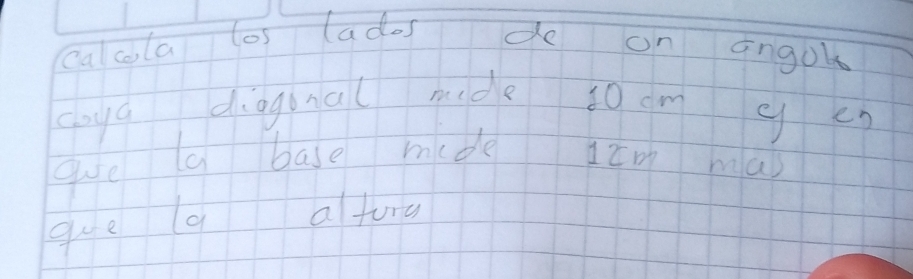 calcola los lados de on angolo
coya diagonal mide 10 cm y en
que la base mide 1cm mas
que la altura